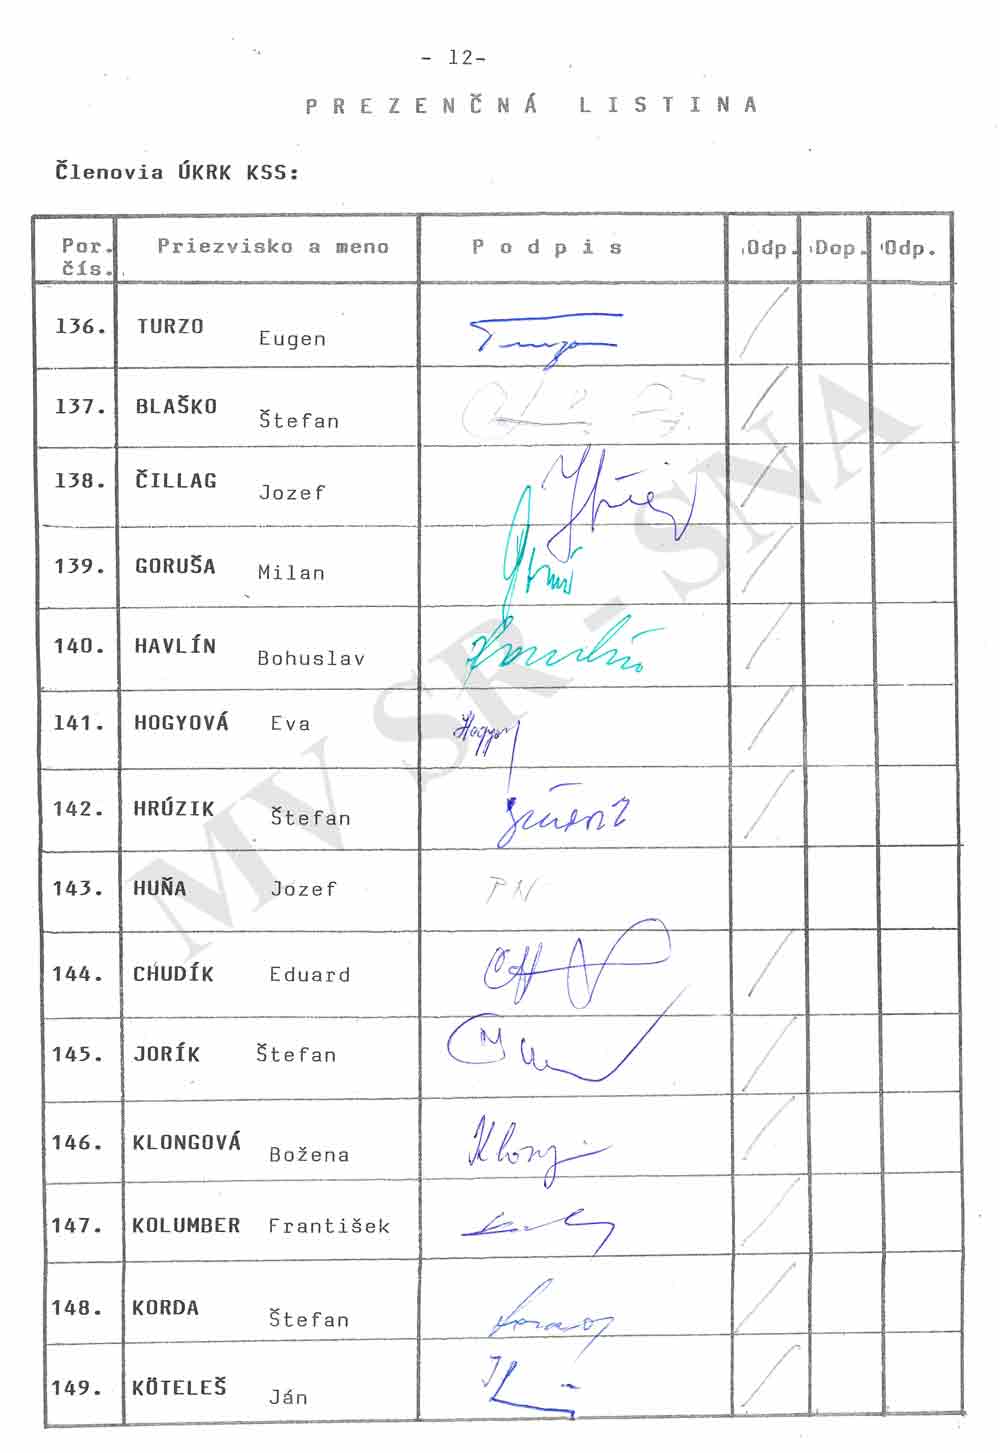 - 12-
PREZENČNÁ LISTINA
Členovia ÚKRK KSS:
Por. čís. Priezvisko a meno Podpis Odp. Dop. Odp.
136. TURZO Eugen
137. BLAŠKO Štefan
138. ČILLAG Jozef
139. GORUŠA Milan
140. HAVLÍN Bohuslav
141. HOGYOVÁ Eva
142. HRÚZIK Štefan
143. HUŇA Jozef PN
144. CHUDÍK Eduard
145. JORÍK Štefan
146. KLONGOVÁ Božena
147. KOLUMBER František
148. KORDA Štefan
149. KÖTELEŠ Ján
MV SR - SNA